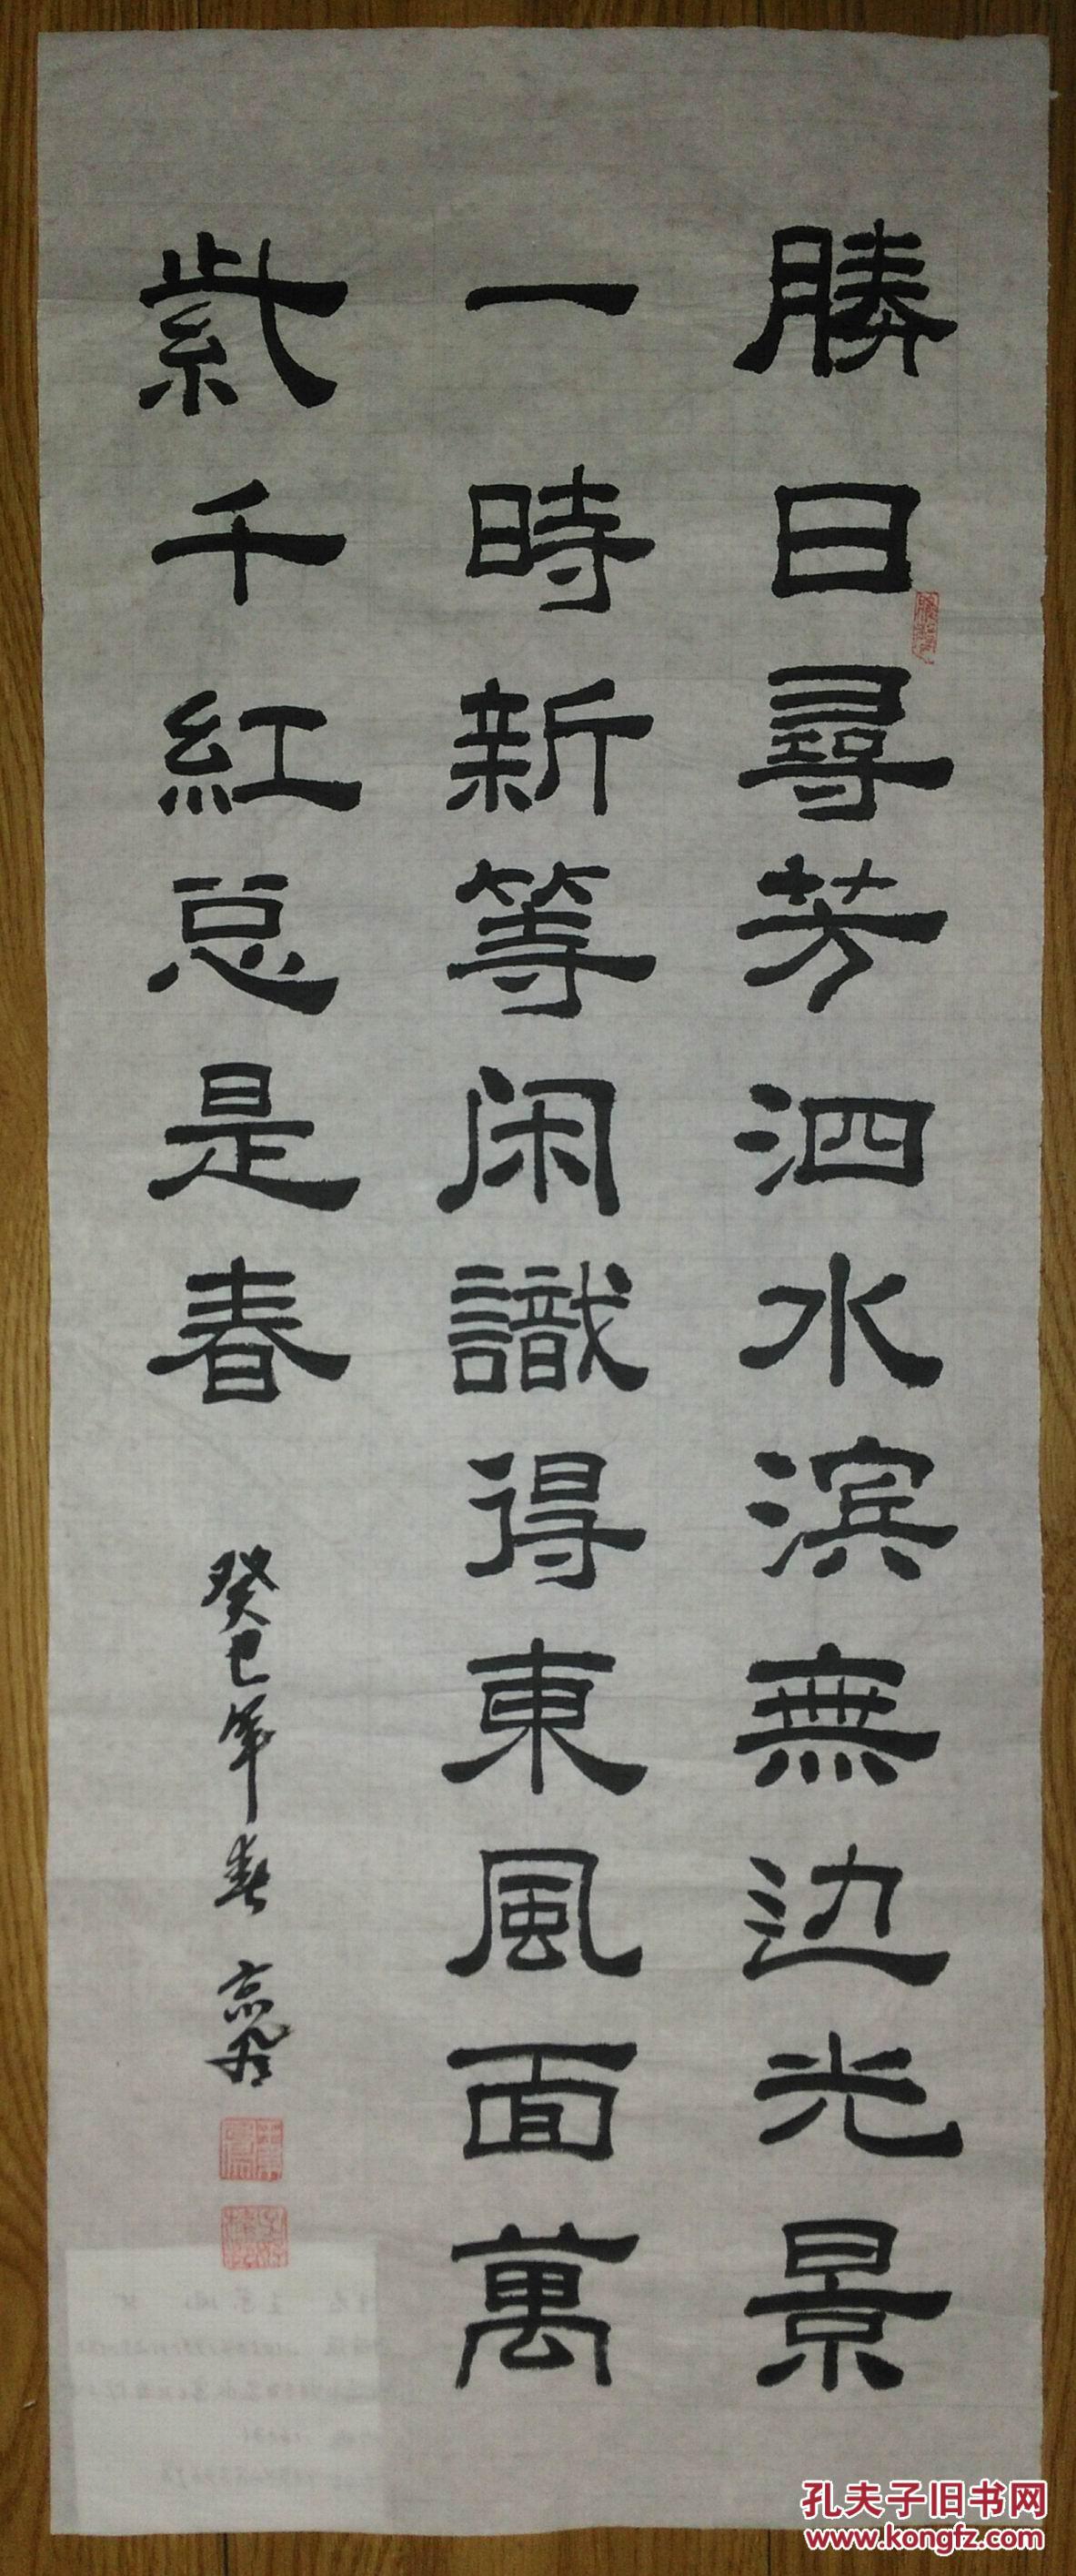 勝日尋芳泗水滨無边光景
一時新等闲識得東風面萬
紫千紅总是春
癸巳年春
孔夫子旧书网
www.kongfz.com